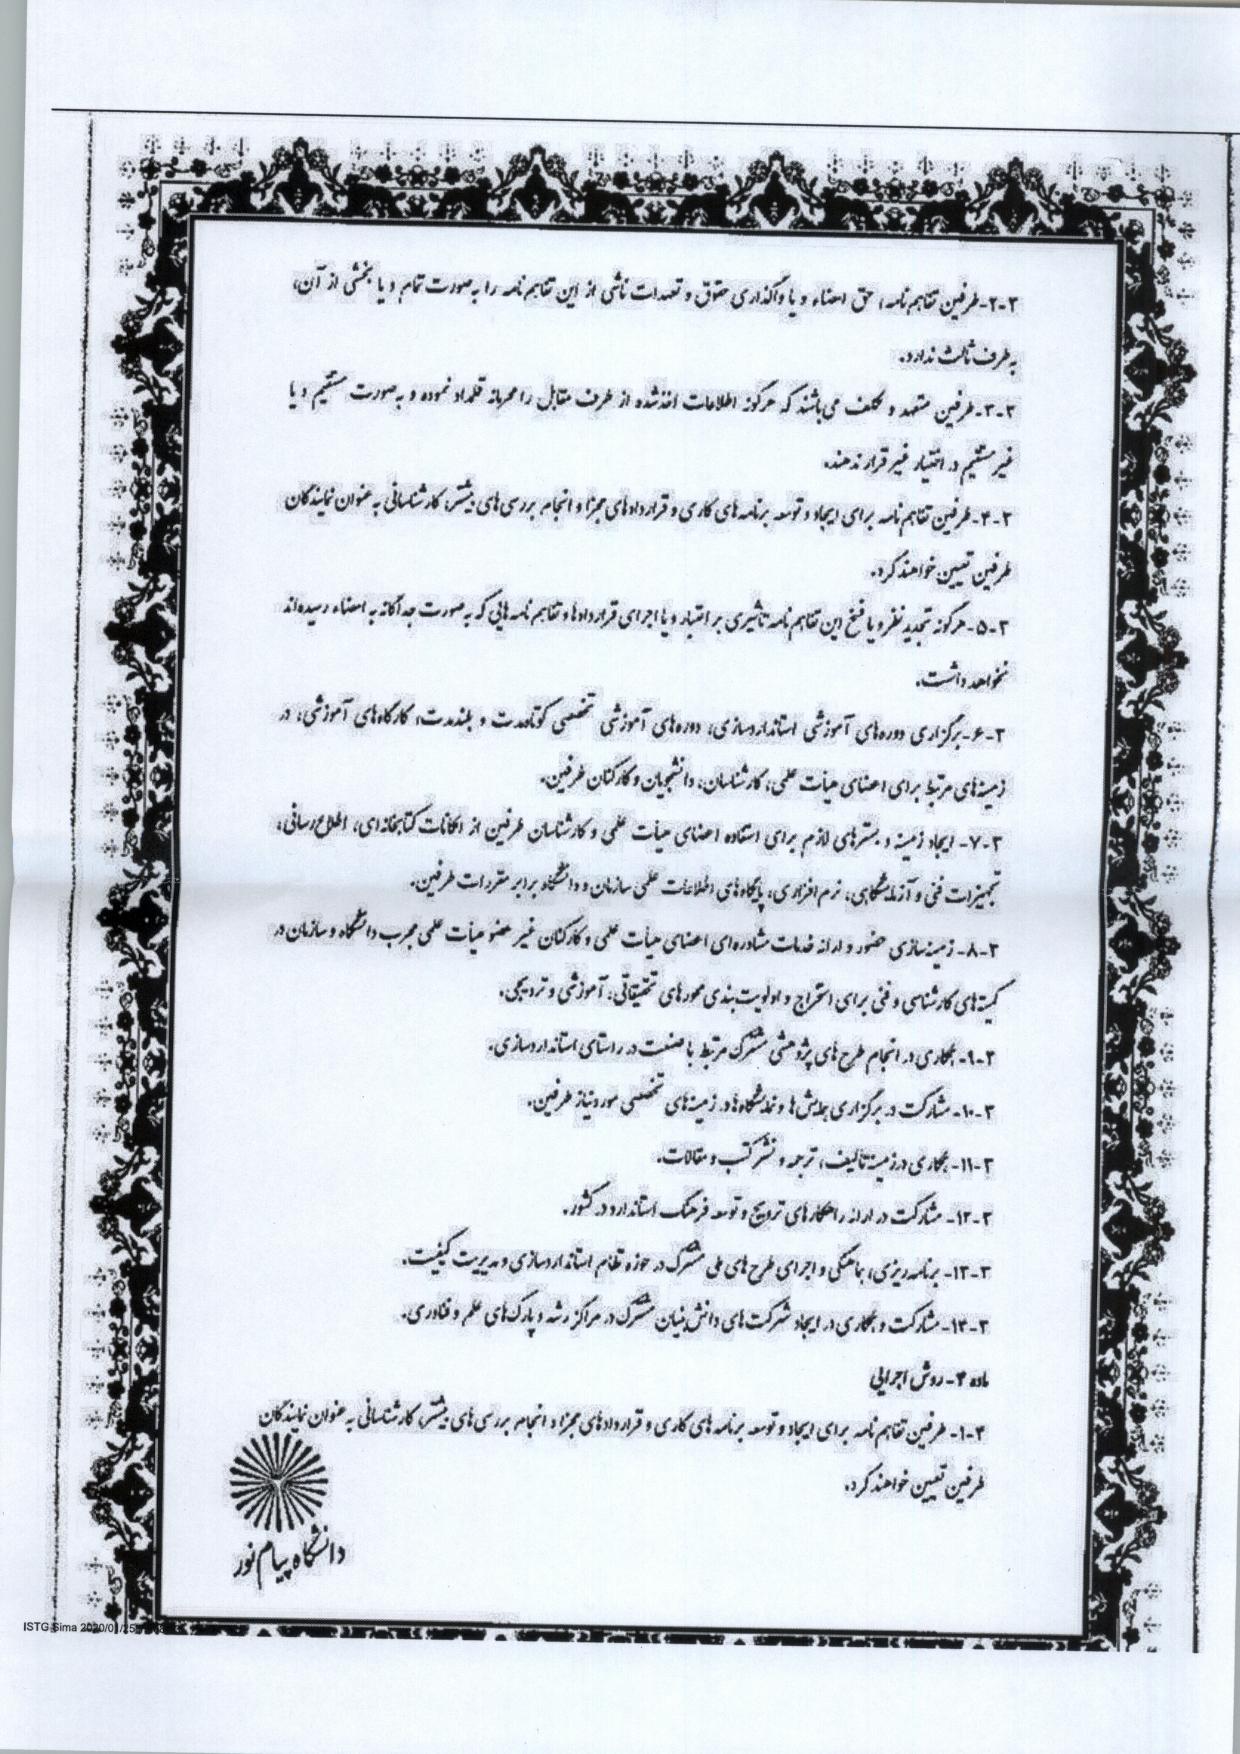 ۳-۲-طرفین تفاهم نامه، حق امضاء و یا واگذاری حقوق و تعهدات ناشی از این تفاهم نامه را به‌صورت تمام و یا بخشی از آن،
به طرف ثالث ندارد.
۳-۳-طرفین متعهد و مکلف می‌باشند که هرگونه اطلاعات اخذ شده از طرف مقابل را محرمانه قلمداد نموده و به‌صورت مستقیم و یا
غیر مستقیم در اختیار غیر قرار ندهند.
۳-۴-طرفین تفاهم نامه برای ایجاد و توسعه برنامه‌های کاری و قراردادهای مجزا و انجام بررسی‌های بیشتر، کارشناسانی به عنوان نمایندگان
طرفین تعیین خواهند کرد.
۳-۵-هرگونه تجدید نظر و یا فسخ این تفاهم نامه تأثیری بر اعتبار و یا اجرای قراردادها و تفاهم نامه‌هایی که به صورت جداگانه به امضاء رسیده‌اند
نخواهد داشت.
۳-۶-برگزاری دوره‌های آموزشی استانداردسازی، دوره‌های آموزشی تخصصی کوتاه‌مدت و بلندمدت، کارگاه‌های آموزشی، در
زمینه‌های مرتبط برای اعضای هیأت علمی، کارشناسان، دانشجویان و کارکنان طرفین.
۳-۷- ایجاد زمینه و بسترهای لازم برای استفاده اعضای هیأت علمی و کارشناسان طرفین از امکانات کتابخانه‌ای، اطلاع‌رسانی،
تجهیزات فنی و آزمایشگاهی، نرم افزاری، پایگاه‌های اطلاعات علمی سازمان و دانشگاه برابر مقررات طرفین.
۳-۸- زمینه‌سازی حضور و ارائه خدمات مشاوره‌ای اعضای هیأت علمی و کارکنان غیر عضو هیأت علمی مجرب دانشگاه و سازمان در
کمیته‌های کارشناسی و فنی برای استخراج و اولویت‌بندی محورهای تحقیقاتی، آموزشی و ترویجی.
۳-۹- همکاری در انجام طرح‌های پژوهشی مشترک مرتبط با صنعت در راستای استانداردسازی.
۳-۱۰- مشارکت در برگزاری همایش‌ها و نمایشگاه‌ها در زمینه‌های تخصصی مورد نیاز طرفین.
۳-۱۱- همکاری در زمینه تألیف، ترجمه و نشر کتب و مقالات.
۳-۱۲- مشارکت در ارائه راهکارهای ترویج و توسعه فرهنگ استاندارد در کشور.
۳-۱۳- برنامه‌ریزی، هماهنگی و اجرای طرح‌های ملی مشترک در حوزه نظام استانداردسازی و مدیریت کیفیت.
۳-۱۴- مشارکت و همکاری در ایجاد شرکت‌های دانش‌بنیان مشترک در مراکز رشد و پارک‌های علم و فناوری.
ماده ۴- روش اجرایی
۴-۱- طرفین تفاهم نامه برای ایجاد و توسعه برنامه‌های کاری و قراردادهای مجزا و انجام بررسی‌های بیشتر، کارشناسانی به عنوان نمایندگان
طرفین تعیین خواهند کرد.
دانشگاه پیام نور
ISTG Sima